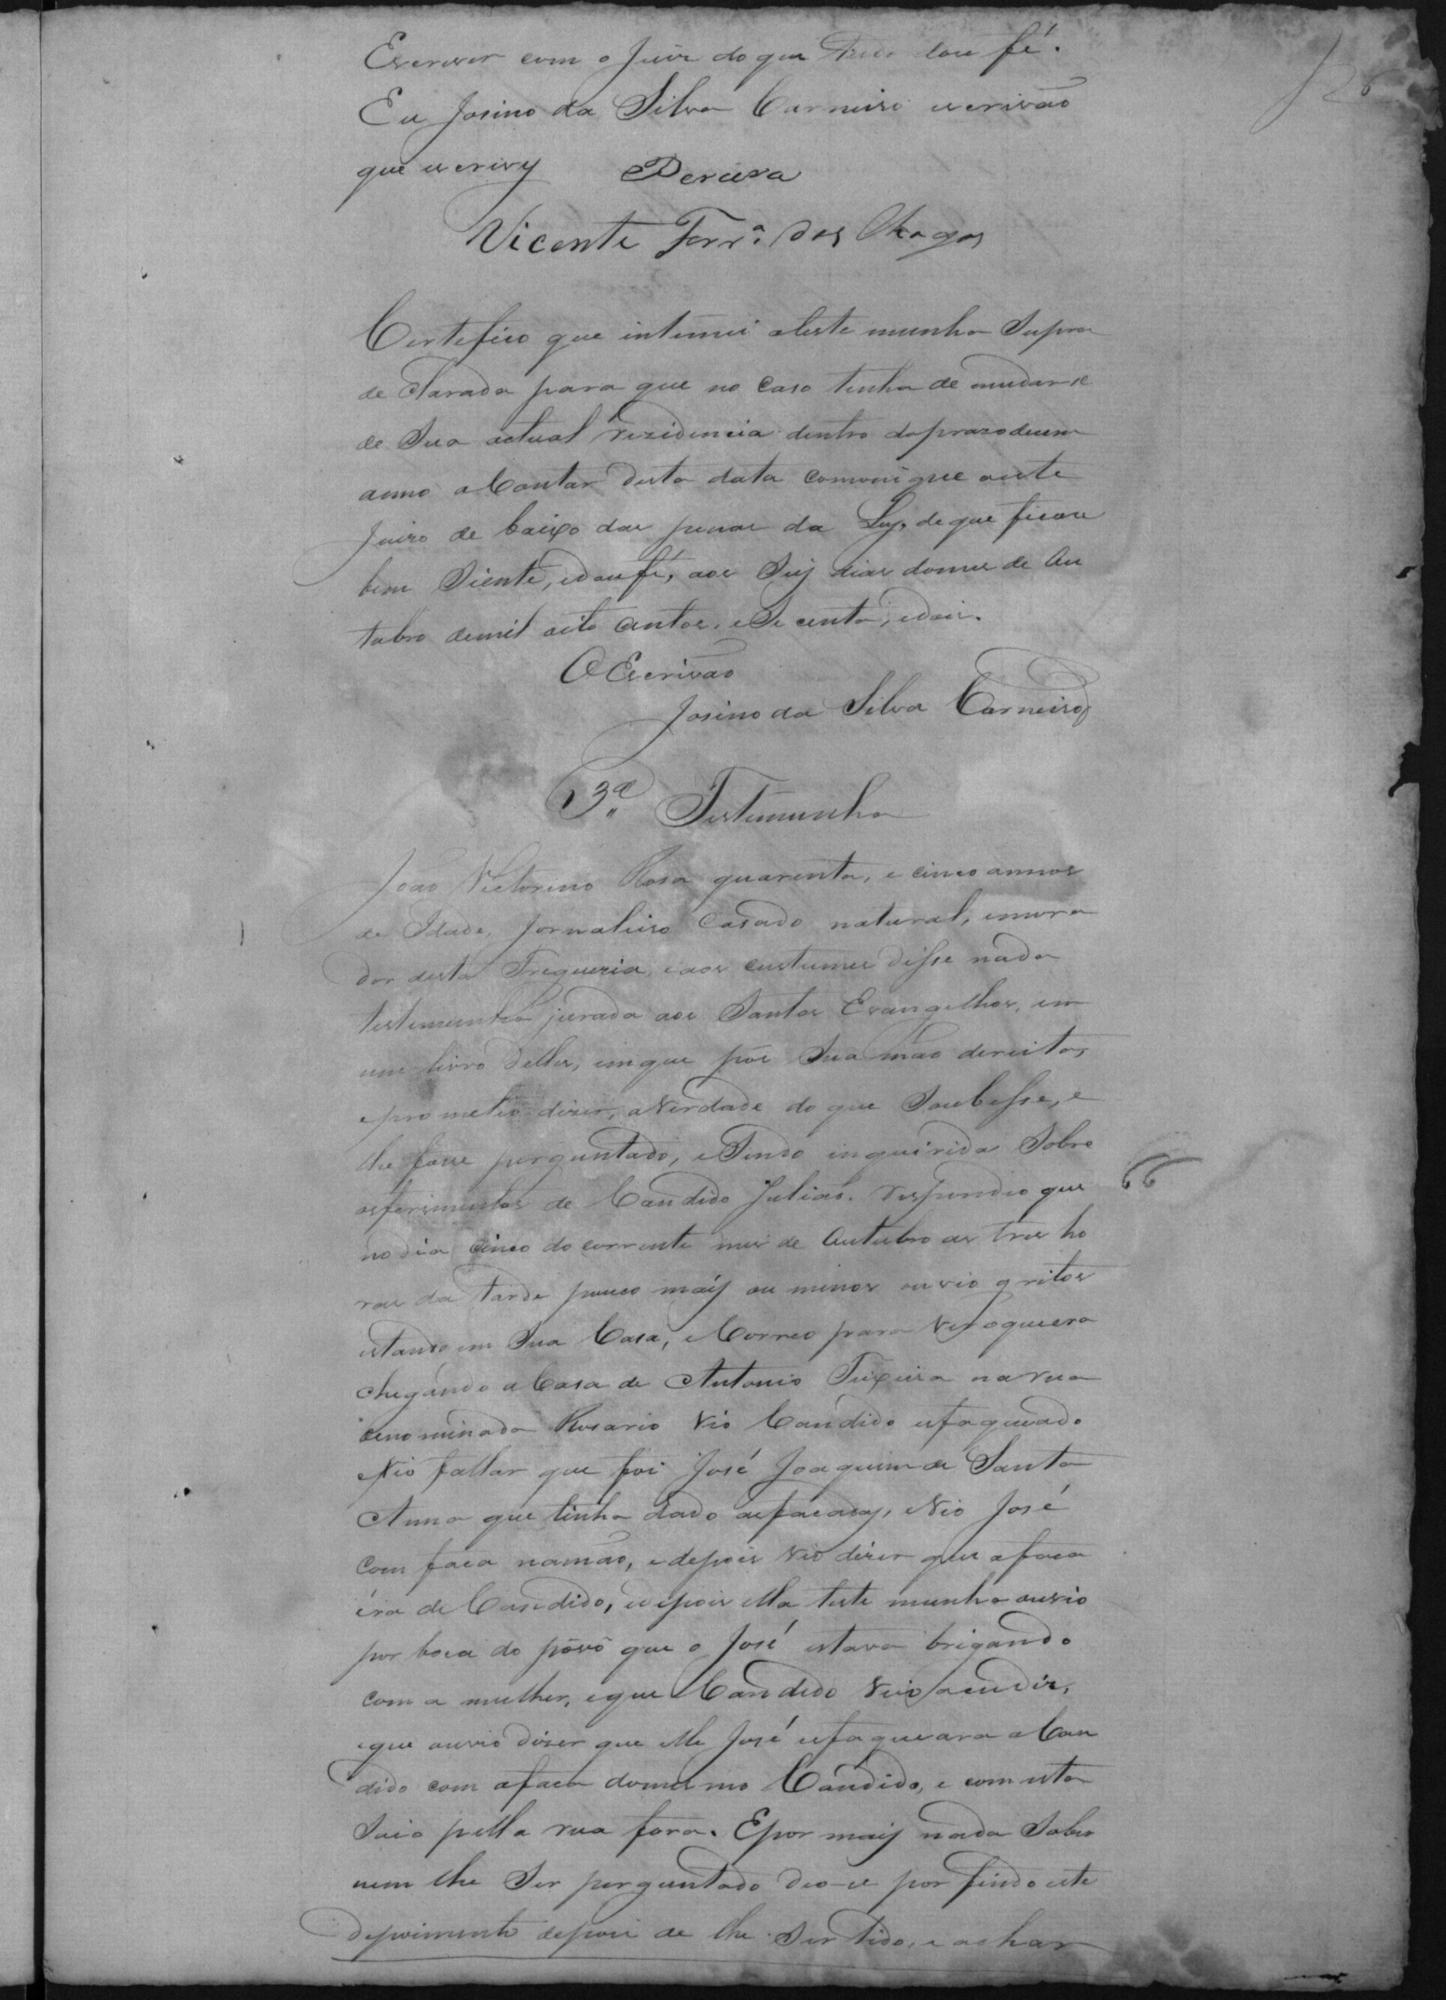 Escrever com o Juiz do que tudo dou fé.
Eu Josino da Silva Carneiro escrivão
que escrivy Pereira
Vicente Ferr.ª das Chagas
Certefico que intimei a teste munha Supra
de Clarada para que no caso tenha de mudar-se
de Sua actual rezidencia dentro do prazo de um
anno a Contar desta data comonique a este
Juizo de baixo das penas da Ley, de que ficou
bem Siente, e dou fé, aos Seij dias do mes de Au
tubro de mil oito centos, e Se centa, e dois.
O Escrivão
Josino da Silva Carneiro
3ª Testemunha
João Victorino Rosa quarenta, e cinco annos
de Idade, Jornaleiro Casado natural, e mora
dor desta Freguezia, e aos custumes disse nada
testemunha jurada aos Santos Evangelhos, em
um livro delles, em que pôs Sua mão dereita,
e pro meteo dizer, a Verdade do que Soubesse, e
lhe fosse perguntado, e Sendo inquirida Sobre
os ferimentos de Candido Julião. respondeo que
no dia Cinco do corrente mes de Autubro as tres ho
ras da tarde pouco maij ou menos ouvio gritos
estando em Sua Casa, e Correo para Ver o que era
chegando a Casa de Antonio Teixeira na rua
denominada Rosario Vio Candido esfaqueado
e Vio fallar que foi José Joaquim de Santa
Anna que tinha dado as facadas, e Vio José
com faca na mão, e depois Vio dizer que a faca
éra de Candido, e depois ella teste munha ouvio
por boca do pôvô que o José estava brigando
com a mulher, e que Candido Veio acudir,
e que ouvio dizer que elle José esfaqueara a Can
dido com a faca do mesmo Candido, e com esta
Saio pella rua fora. E por maij nada Saber
nem lhe Ser perguntado deo-se por findo este
depoimento depois de lhe Ser lido, e achar